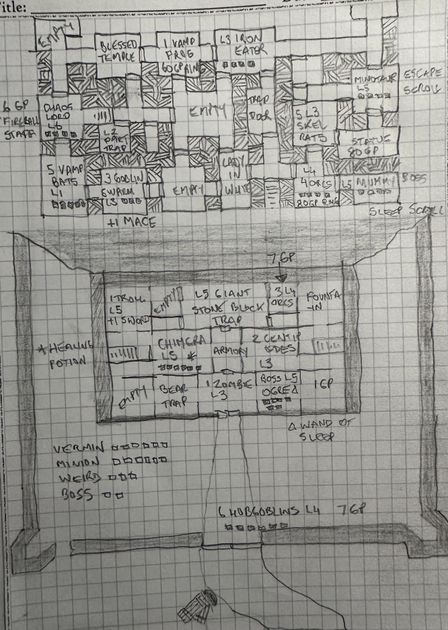 Title:
EMPTY
BLESSED
TEMPLE
1 VAMP
FROG
L3 IRON
EATER
MINOTAUR
L5
ESCAPE
SCROLL
6 GP
FIREBALL
STAFF
CHAOS
LORD
L6
L2 DART
TRAP
EMPTY
TRAP
DOOR
5 L3
SKEL
RATS
STATUE
80 GP
5 VAMP
BATS
L1
3 GOBLIN
SWARM
L3
EMPTY
LADY
IN
WHITE
L4
4 ORCS
L5 MUMMY
BOSS
+1 MACE
SLEEP SCROLL
7 GP
1 TROLL
L5
+1 SWORD
EMPTY
L5 GIANT
STONE BLOCK
TRAP
3 L4
ORCS
FOUNTA
-IN
* HEALING
POTION
CHIMERA
L5 *
ARMORY
2 CENTIP
EDES
L3
EMPTY
BEAR
TRAP
1 ZOMBIE
L3
BOSS L5
OGRE Δ
1 GP
Δ WAND OF
SLEEP
VERMIN
MINION
WEIRD
BOSS
6 HOBGOBLINS L4 7 GP